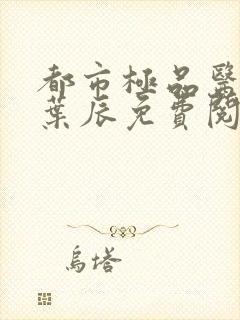 都市極品醫
葉辰免費閱
烏塔